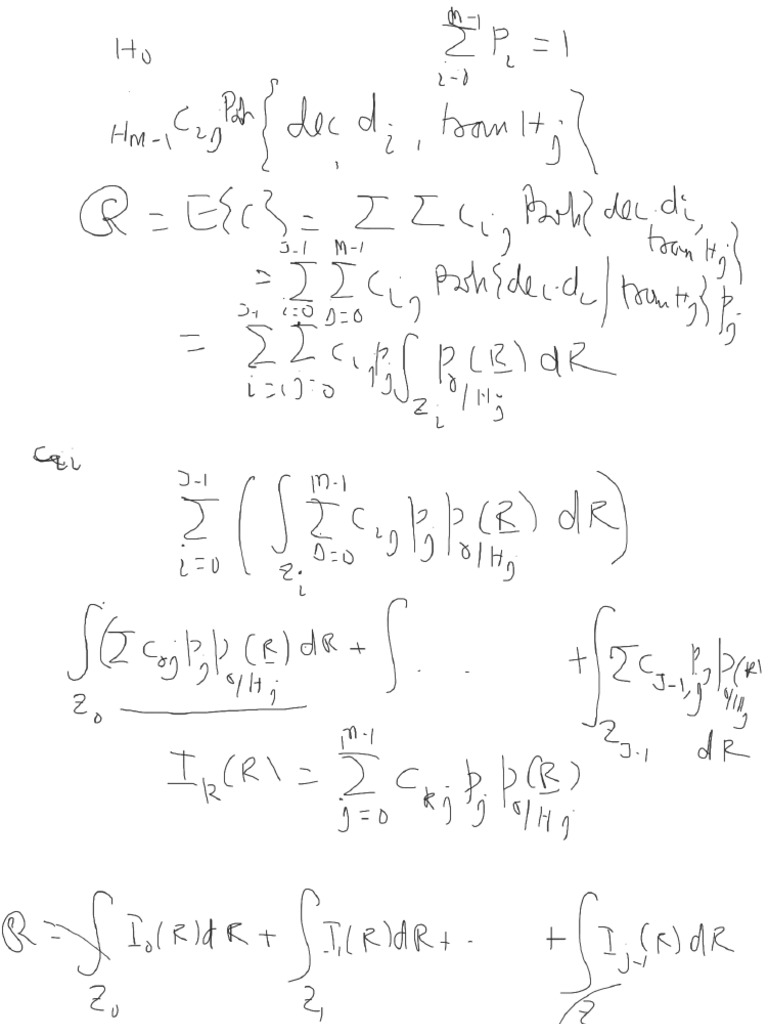 H₀ ∑_{i=0}^{M-1} P_i = 1
H_{M-1} C_{ij} Prob{dec d_i, tran H_j}
R = E{C} = ∑ ∑ C_{ij} Prob{dec. d_i, tran H_j}
= ∑_{i=0}^{J-1} ∑_{j=0}^{M-1} C_{ij} Prob{dec. d_i | tran H_j} p_j
= ∑_{i=0}^{J-1} ∑_{j=0} C_{ij} p_j ∫_{Z_i} p_{r/H_j}(R) dR
∑_{i=0}^{J-1} ( ∫_{Z_i} ∑_{j=0}^{M-1} C_{ij} p_j p_{r/H_j}(R) dR )
∫_{Z_0} (∑ C_{0j} p_j p_{r/H_j}(R) dR + ∫ . . + ∫_{Z_{J-1}} ∑ C_{J-1,j} p_j p_{r/H_j}(R) dR
I_k(R) = ∑_{j=0}^{M-1} C_{kj} p_j p_{r/H_j}(R)
R = ∫_{Z_0} I_0(R) dR + ∫_{Z_1} I_1(R) dR + . + ∫_Z I_{J-1}(R) dR